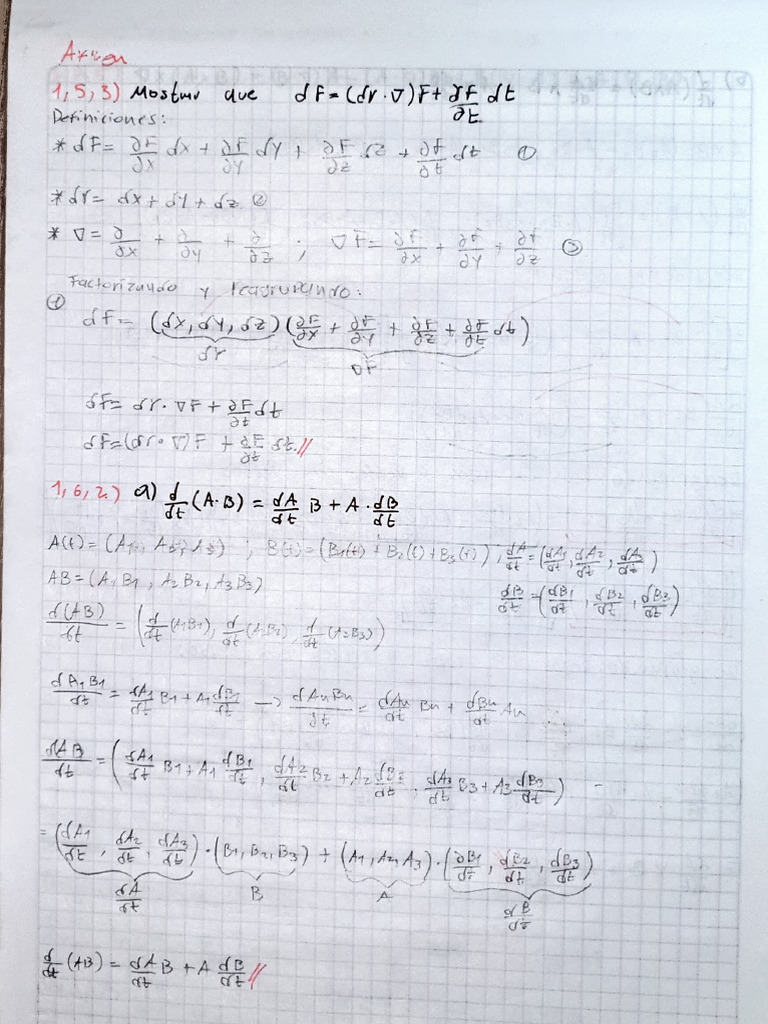 Arfken
1,5,3) Mostrar que dF=(dr·∇)F+∂F/∂t dt
Definiciones:
* dF= ∂F/∂x dx + ∂F/∂y dy + ∂F/∂z dz + ∂F/∂t dt ①
* dr= dx+dy+dz ②
* ∇= ∂/∂x + ∂/∂y + ∂/∂z ; ∇F= ∂F/∂x + ∂F/∂y + ∂F/∂z ③
Factorizando y reagrupando:
① dF= (dx, dy, dz)(∂F/∂x + ∂F/∂y + ∂F/∂z + ∂F/∂t dt)
dr ∇F
dF= dr·∇F + ∂F/∂t dt
dF=(dr·∇)F + ∂F/∂t dt //
1,6,2) a) d/dt (A·B) = dA/dt B + A·dB/dt
A(t)=(A1, A2, A3) ; B(t)=(B1(t)+B2(t)+B3(t)), dA/dt=(dA1/dt, dA2/dt, dA3/dt)
AB=(A1B1, A2B2, A3B3) dB/dt=(dB1/dt, dB2/dt, dB3/dt)
d(AB)/dt = (d/dt(A1B1), d/dt(A2B2), d/dt(A3B3))
dA1B1/dt = dA1/dt B1 + A1 dB1/dt → dAnBn/dt = dAn/dt Bn + dBn/dt An
dAB/dt = (dA1/dt B1 + A1 dB1/dt, dA2/dt B2 + A2 dB2/dt, dA3/dt B3 + A3 dB3/dt)
= (dA1/dt, dA2/dt, dA3/dt)·(B1, B2, B3) + (A1, A2, A3)·(∂B1/dt, dB2/dt, dB3/dt)
dA/dt B A dB/dt
d/dt (AB) = dA/dt B + A dB/dt //